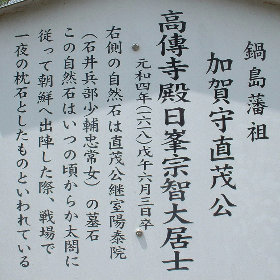 鍋島藩祖
加賀守直茂公
高傳寺殿日峯宗智大居士
元和四年(一六一八)戊午六月三日卒
右側の自然石は直茂公継室陽泰院
(石井兵部少輔忠常女)の墓石
この自然石はいつの頃からか太閤に
従って朝鮮へ出陣した際、戦場で
一夜の枕石としたものといわれている